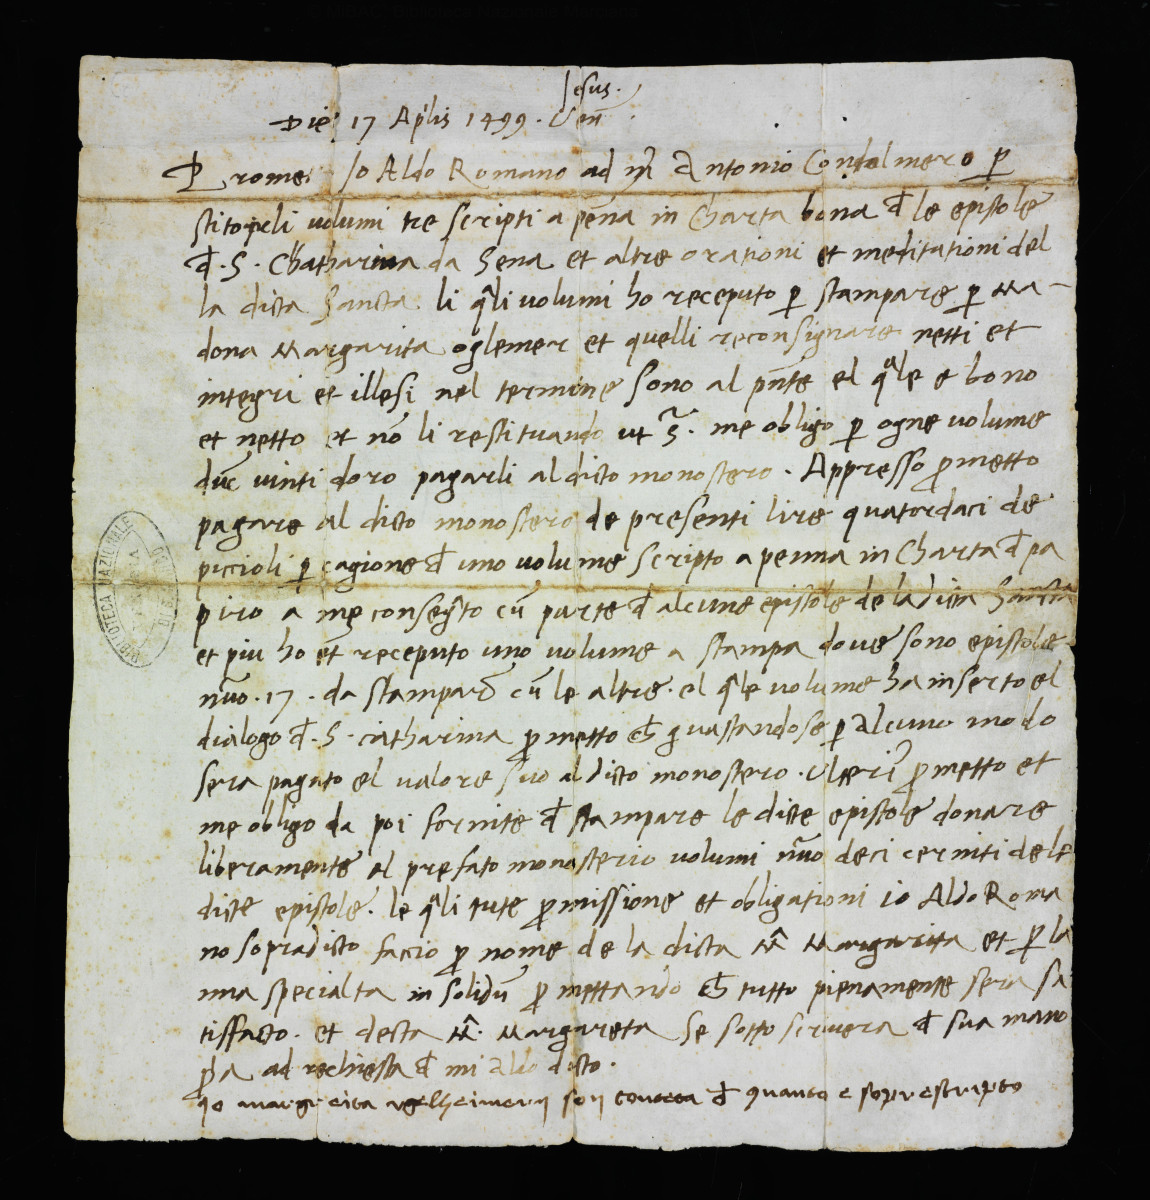 Jesus.
Die 17 Aplis 1499. Ven
Prome Io Aldo Romano ad mr Antonio Condalmero p
stitor deli volumi tre scripti a pena in Charta bona đ le epistole
đ. S. Chatharina da Sena et altre orationi et meditationi del
la dicta Sancta li qli volumi ho receputo p stampare p Ma-
dona Margarita oglemer et quelli reconsignare netti et
integri et illesi nel termine sono al pnte el qle e bono
et netto et nō li restituando ut S. me obligo p ogne volume
duc vinti doro pagarli al dicto monostero. Appresso pmetto
pagare al dicto monostero de presenti lire quatordaci de
piccioli p cagione đ uno volume scripto a penna in Charta đ pa
piro a me consegto cū parte đ alcune epistole de la dicta Sancta
et piu ho et receputo uno volume a stampa dove sono epistole
nuo. 17. da stampar cū le altre. el qle volume ha inserto el
dialogo đ. S. catharina pmetto ch guastandose p alcuno modo
sera pagato el valore suo al dicto monostero. Ulteri pmetto et
me obligo da poi fornite đ stampare le dicte epistole donare
liberamente al prefato monasterio volumi nuo deci cerniti de le
dicte epistole. le qli tute pmissione et obligationi io Aldo Roma
no sopradicto faccio p nome de la dicta M Margarita et p la
mia specialta in solidū pmettando ch tutto pienamente sera sa
tisffacto. et decta M. Margareta se sotto scrivera đ sua mano
pa ad rechiesta đ mi aldo dicto.
io margreita son contenta đ quanto e soprescripto
BIBLIOTECA NAZIONALE
DI S. MARCO